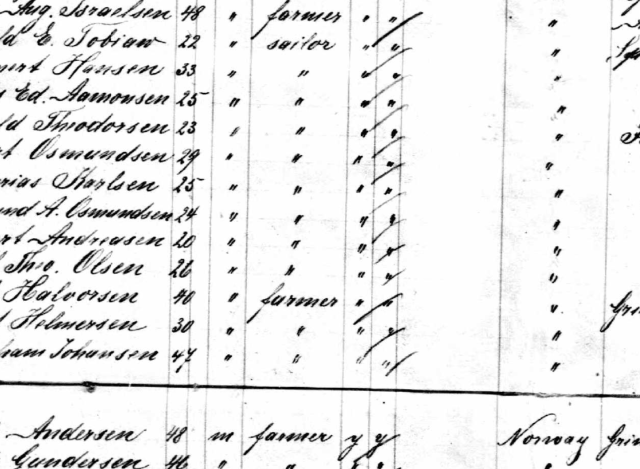 Aug. Israelsen 48 " farmer " "
E. Tobias 22 " sailor " "
Hansen 33 " " " " "
Ed. Aamonsen 25 " " " " "
Theodorsen 23 " " " " "
Osmundsen 29 " " " " "
Karlsen 25 " " " " "
A. Osmundsen 24 " " " " "
Andreasen 20 " " " " "
Theo. Olsen 26 " " " " "
Halvorsen 40 " farmer " " "
Helmersen 30 " " " " "
Johansen 47 " " " " "
Andersen 48 m farmer y y Norway
Gundersen 46 " " " "